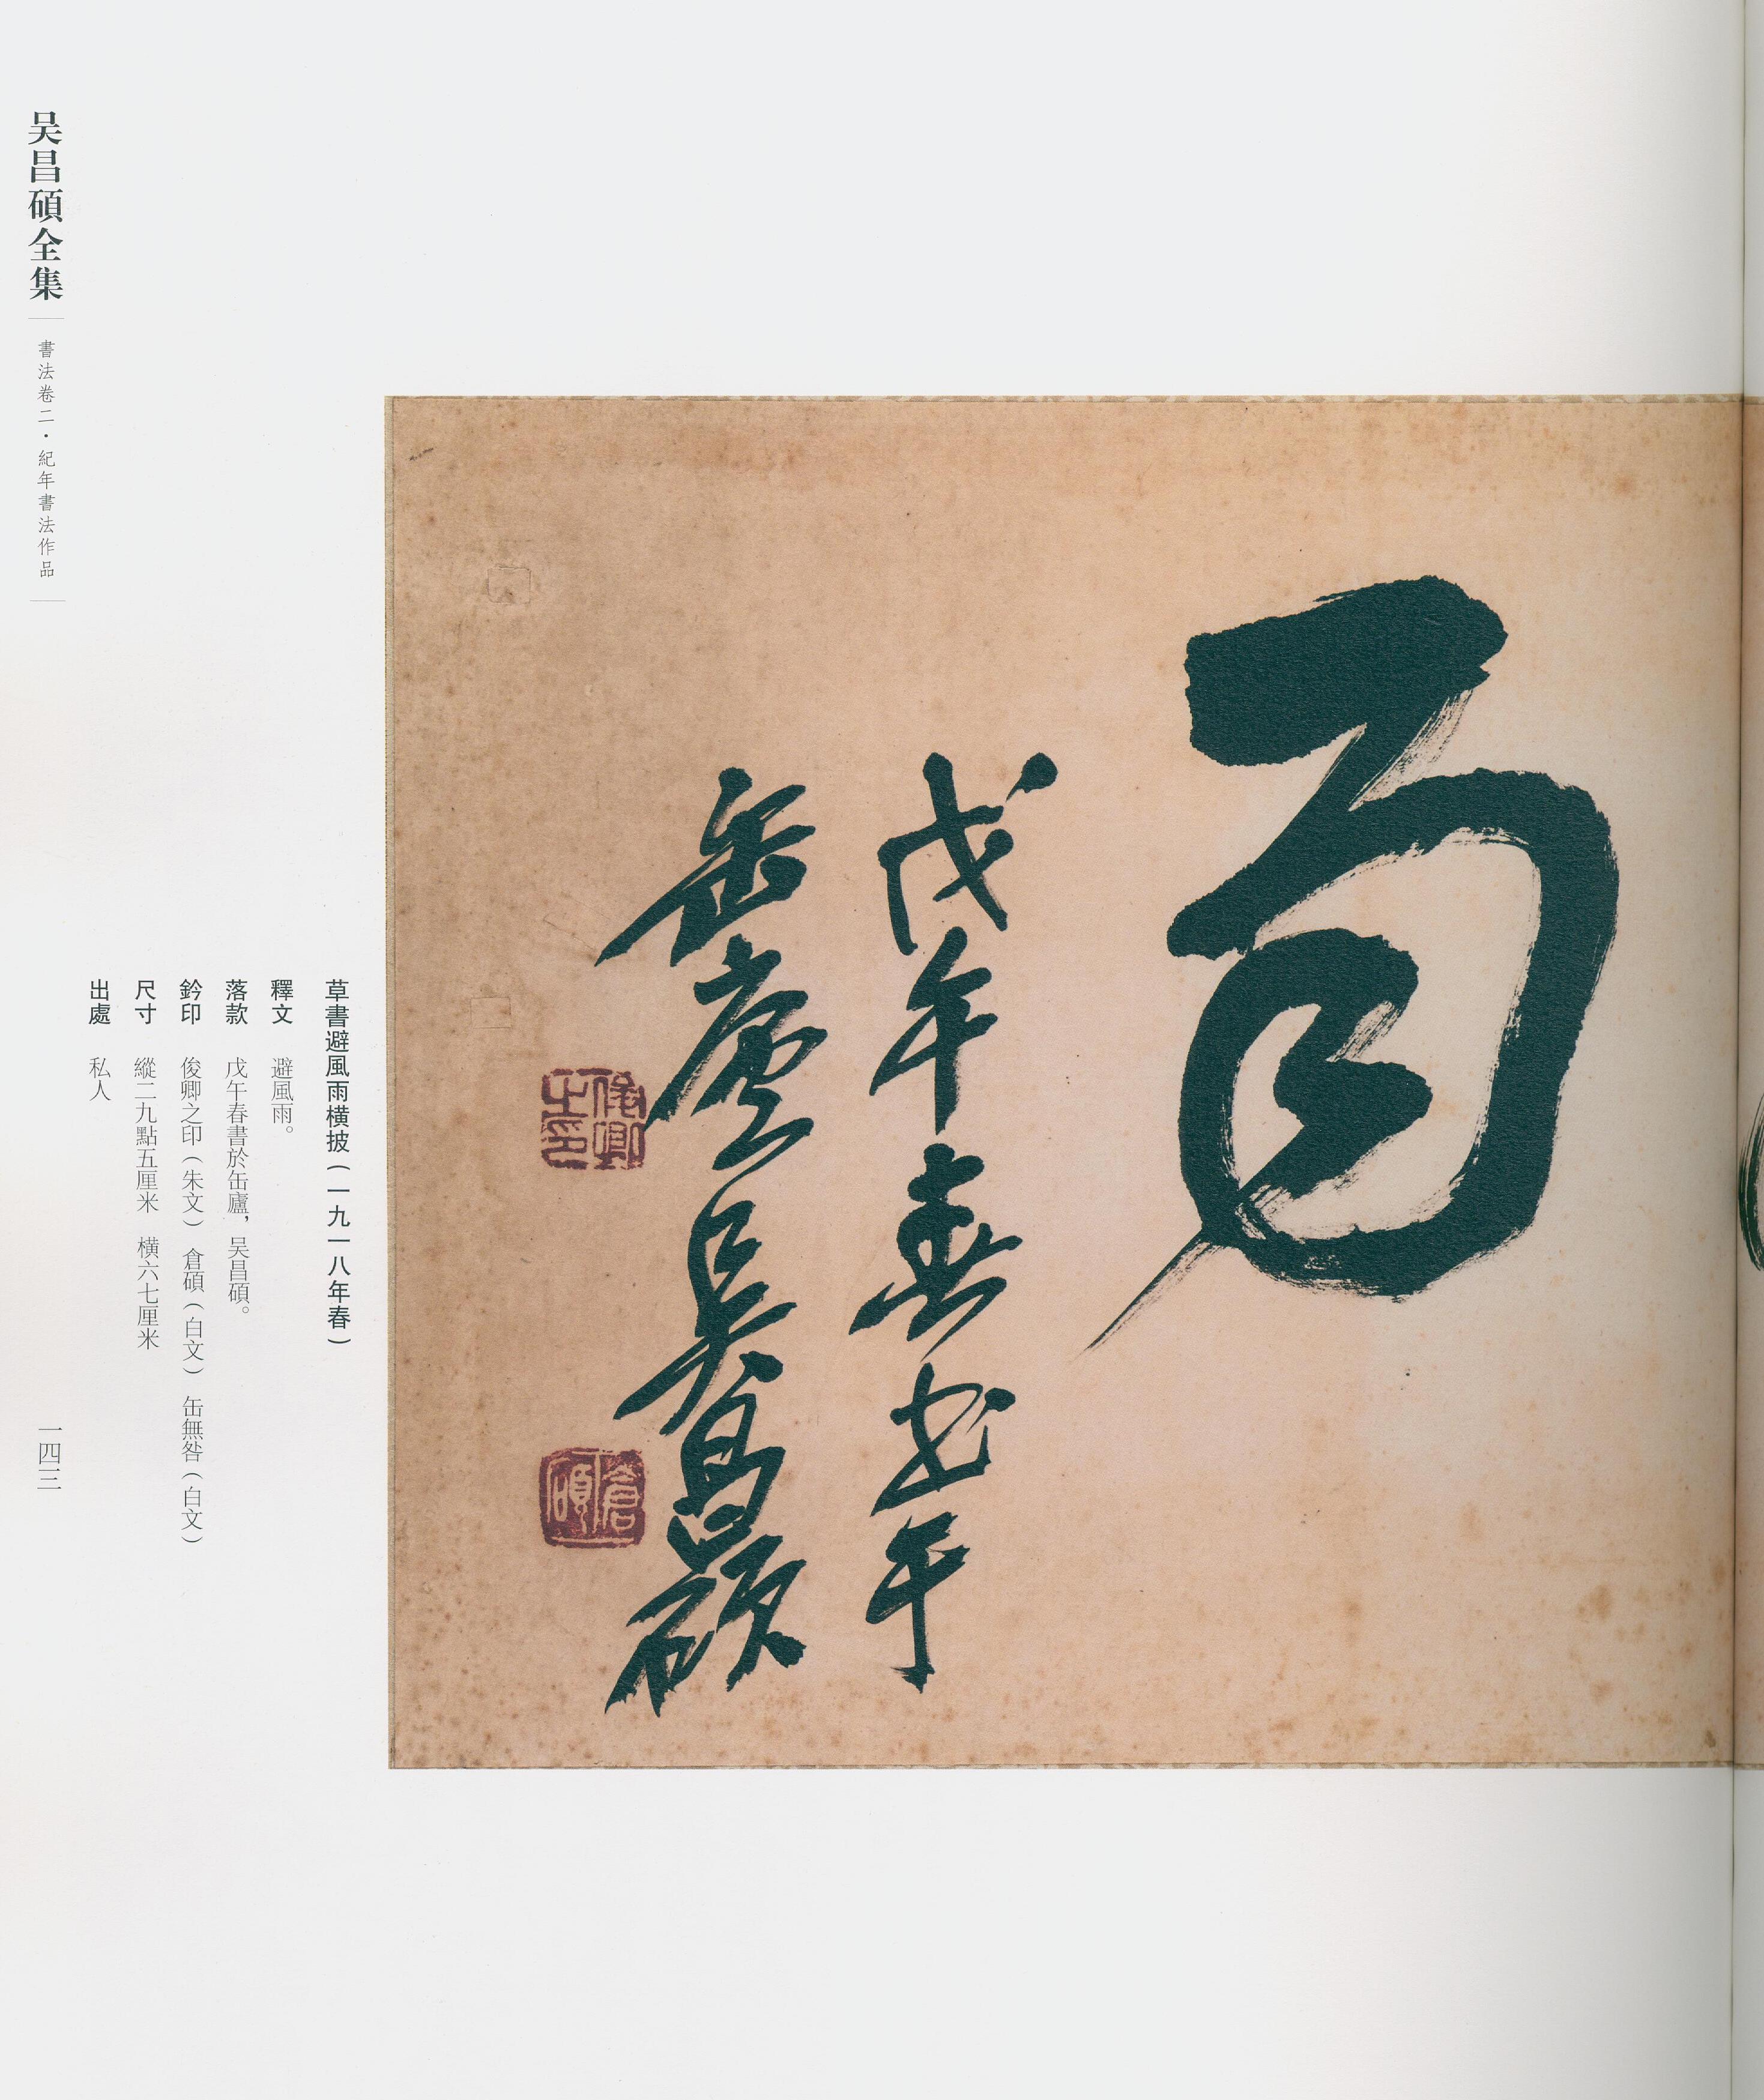 雨
戊午春書於
缶廬吳昌碩
俊卿之印
倉碩
草書避風雨橫披(一九一八年春)
釋文 避風雨。
落款 戊午春書於缶廬,吴昌碩。
鈐印 俊卿之印(朱文) 倉碩(白文) 缶無咎(白文)
尺寸 縱二九點五厘米 橫六七厘米
出處 私人
吴昌碩全集
書法卷二·紀年書法作品
一四三